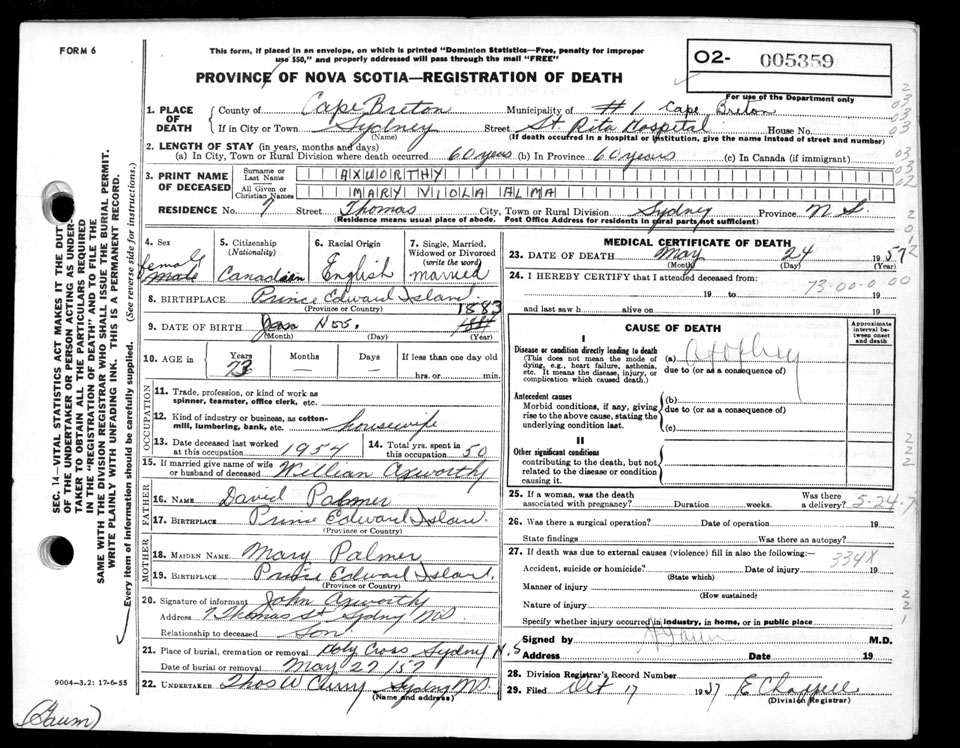 FORM 6
This form, if placed in an envelope, on which is printed "Dominion Statistics—Free, penalty for improper
use $50," and properly addressed will pass through the mail "FREE"
PROVINCE OF NOVA SCOTIA—REGISTRATION OF DEATH
02- 005359
For use of the Department only
1. PLACE OF DEATH
County of Cape Breton Municipality of #1 Cape Breton
If in City or Town Sydney Street St Rita Hospital House No.
(Name) (If death occurred in a hospital or institution, give the name instead of street and number)
2. LENGTH OF STAY (in years, months and days)
(a) In City, Town or Rural Division where death occurred 60 years (b) In Province 60 years (c) In Canada (if immigrant)
3. PRINT NAME OF DECEASED
Surname or Last Name AXWORTHY
All Given or Christian Names MARY VIOLA ALMA
RESIDENCE No. 7 Street Thomas City, Town or Rural Division Sydney Province N S.
(Residence means usual place of abode. Post Office Address for residents in rural parts not sufficient)
4. Sex female male
5. Citizenship (Nationality) Canadian
6. Racial Origin English
7. Single, Married, Widowed or Divorced (write the word) married
8. BIRTHPLACE Prince Edward Island
(Province or Country)
9. DATE OF BIRTH Jan 1883
(Month) (Day) (Year)
10. AGE in Years 73 Months — Days — If less than one day old
hrs. or min.
OCCUPATION
11. Trade, profession, or kind of work as spinner, teamster, office clerk, etc.
12. Kind of industry or business, as cotton-mill, lumbering, bank, etc. housewife
13. Date deceased last worked at this occupation 1954 14. Total yrs. spent in this occupation 50
15. If married give name of wife or husband of deceased William Axworthy
FATHER
16. NAME David Palmer
17. BIRTHPLACE Prince Edward Island.
(Province or Country)
MOTHER
18. MAIDEN NAME Mary Palmer
19. BIRTHPLACE Prince Edward Island.
(Province or Country)
20. Signature of informant John Axworthy
Address 7 Thomas St Sydney NS
Relationship to deceased Son
21. Place of burial, cremation or removal Holy Cross Sydney N.S
Date of burial or removal May 27/57
22. UNDERTAKER Thos W Curry Sydney NS.
(Name and address)
MEDICAL CERTIFICATE OF DEATH
23. DATE OF DEATH May 24 1957
(Month) (Day) (Year)
24. I HEREBY CERTIFY that I attended deceased from:
73-00-0-00
19 to 19
and last saw h alive on 19
CAUSE OF DEATH
Approximate interval between onset and death
I
Disease or condition directly leading to death
(This does not mean the mode of dying, e.g., heart failure, asthenia, etc. It means the disease, injury, or complication which caused death.)
(a)
due to (or as a consequence of)
Antecedent causes
Morbid conditions, if any, giving rise to the above cause, stating the underlying condition last.
(b)
due to (or as a consequence of)
(c)
II
Other significant conditions
contributing to the death, but not related to the disease or condition causing it.
25. If a woman, was the death associated with pregnancy? Duration weeks. Was there a delivery? 5-24-7
26. Was there a surgical operation? Date of operation 19
State findings Was there an autopsy?
27. If death was due to external causes (violence) fill in also the following:— 334X
Accident, suicide or homicide? Date of injury 19
(State which)
Manner of injury
(How sustained)
Nature of injury
Specify whether injury occurred in industry, in home, or in public place
Signed by M.D.
Address Date 19
28. Division Registrar's Record Number
29. Filed Oct 17 1957 E Chappell
(Division Registrar)
SEC. 14—VITAL STATISTICS ACT MAKES IT THE DUTY
OF THE UNDERTAKER OR PERSON ACTING AS UNDER-
TAKER TO OBTAIN ALL THE PARTICULARS REQUIRED
IN THE "REGISTRATION OF DEATH" AND TO FILE THE
SAME WITH THE DIVISION REGISTRAR WHO SHALL ISSUE THE BURIAL PERMIT.
WRITE PLAINLY WITH UNFADING INK. THIS IS A PERMANENT RECORD.
Every item of information should be carefully supplied. (See reverse side for instructions.)
9004—3.2: 17-6-55
(Gaum)